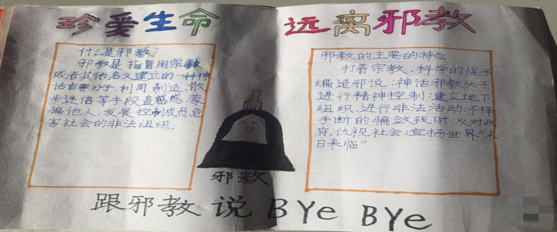 珍爱生命 远离邪教
什么是邪教?
邪教是指冒用宗教
或者其他名义建立的一种神
话首要分子,利用制造、散
步迷信等手段蛊惑、蒙
骗他人,发展、控制成员,危
害社会的非法组织。
邪教的主要的特点
打着宗教、科学的幌子
编造邪说,神话邪教头子
进行精神控制,建立地下
组织,进行非法活动,不择
手断的骗敛钱财,反对政
府、仇视社会;宣扬世界“末
日来临”
邪教
跟邪教说BYe BYe